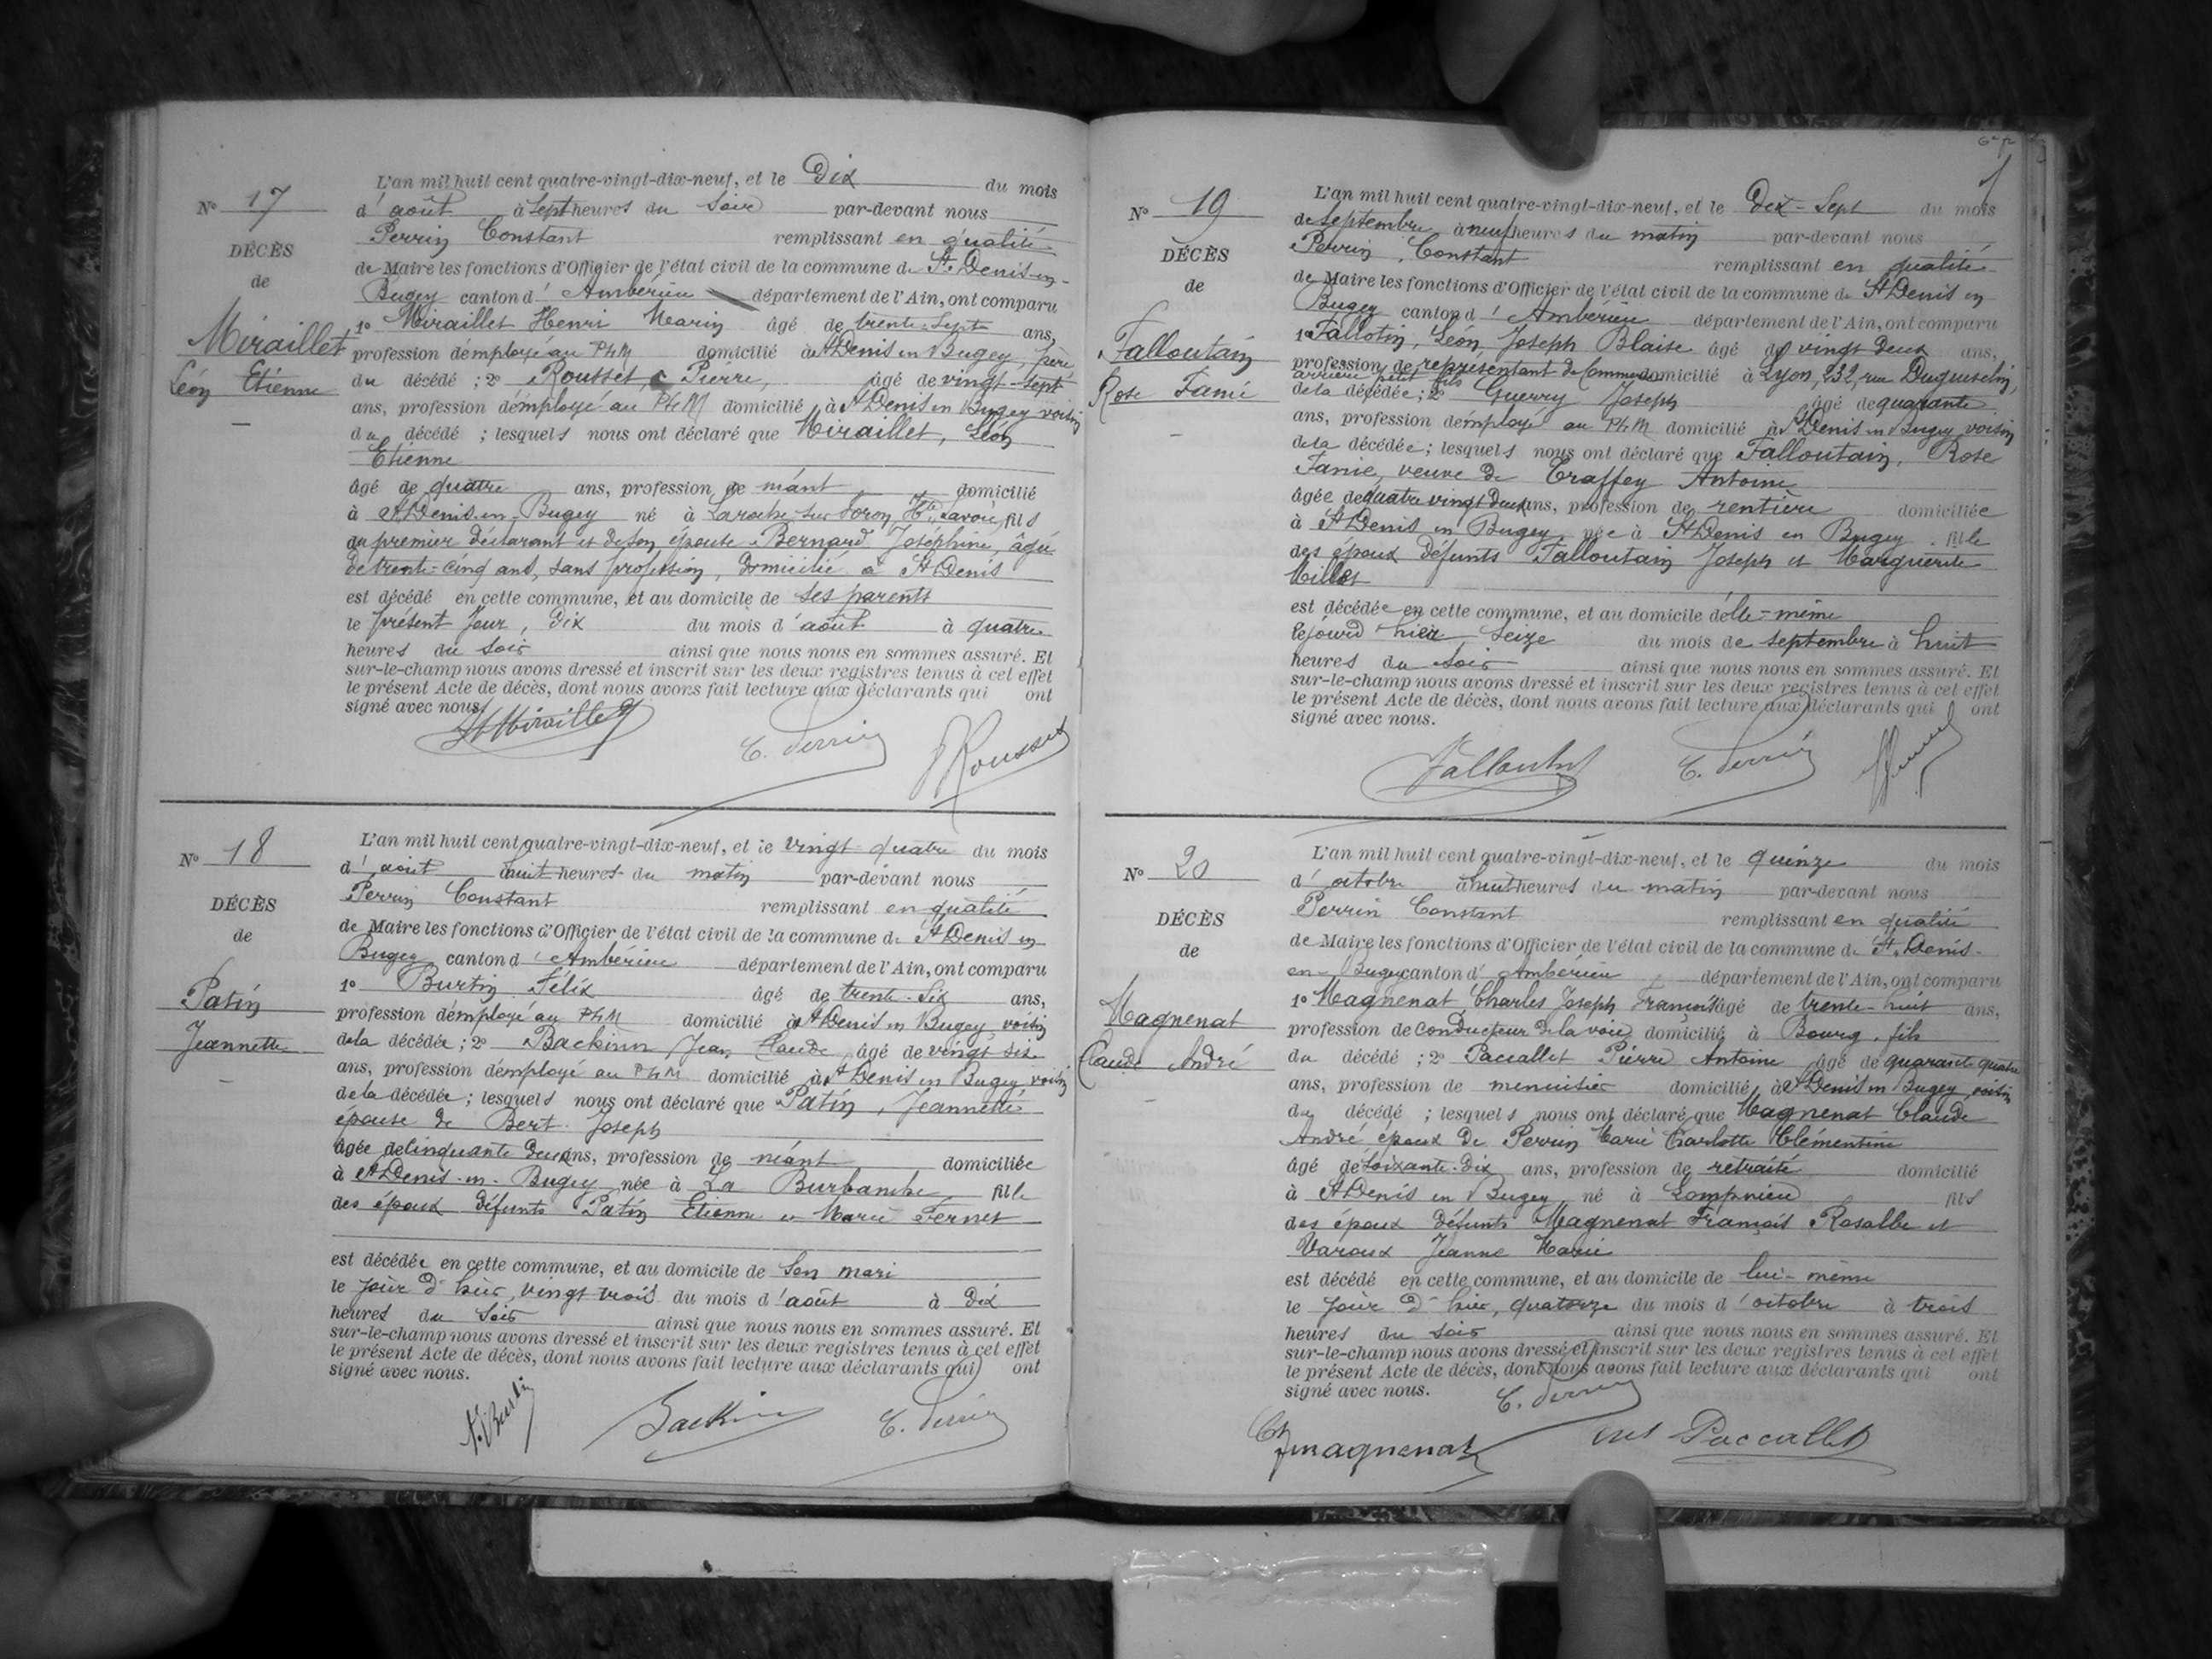 N° 17
DÉCÈS
de
Miraillet
Léon Etienne
L'an mil huit cent quatre-vingt-dix-neuf, et le Dix du mois
d'août à Sept heures du Soir par-devant nous
Perrin Constant remplissant en qualité
de Maire les fonctions d'Officier de l'état civil de la commune de St Denis-en-
Bugey canton d'Ambérieu département de l'Ain, ont comparu
1° Miraillet Henri Marin âgé de trente-sept ans,
profession d'employé au PLM domicilié à St Denis en Bugey, père
du décédé ; 2° Rousset, Pierre, âgé de vingt-sept
ans, profession d'employé au PLM domicilié à St Denis en Bugey voisin
du décédé ; lesquels nous ont déclaré que Miraillet, Léon
Etienne
âgé de quatre ans, profession de néant domicilié
à St Denis-en-Bugey né à Laroche sur Foron, Hte Savoie, fils
du premier déclarant et de son épouse Bernard Joséphine, âgée
de trente-cinq ans, sans profession, domiciliée à St Denis
est décédé en cette commune, et au domicile de ses parents
le présent jour, dix du mois d'août à quatre
heures du soir ainsi que nous nous en sommes assuré. Et
sur-le-champ nous avons dressé et inscrit sur les deux registres tenus à cet effet
le présent Acte de décès, dont nous avons fait lecture aux déclarants qui ont
signé avec nous.
H Miraillet C. Perrin P Rousset
N° 18
DÉCÈS
de
Patin
Jeannette
L'an mil huit cent quatre-vingt-dix-neuf, et le vingt-quatre du mois
d'août à huit heures du matin par-devant nous
Perrin Constant remplissant en qualité
de Maire les fonctions d'Officier de l'état civil de la commune de St Denis en
Bugey canton d'Ambérieu département de l'Ain, ont comparu
1° Burtin Félix âgé de trente-six ans,
profession d'employé au PLM domicilié à St Denis en Bugey voisin
de la décédée ; 2° Backinn Jean Claude âgé de vingt six
ans, profession d'employé au PLM domicilié à St Denis en Bugey voisin
de la décédée ; lesquels nous ont déclaré que Patin, Jeannette
épouse de Bert Joseph
âgée de cinquante deux ans, profession de néant domiciliée
à St Denis-en-Bugey née à La Burbanche fille
des époux défunts Patin Etienne et Marie Fernet
est décédée en cette commune, et au domicile de son mari
le jour d'hier, vingt trois du mois d'août à dix
heures du soir ainsi que nous nous en sommes assuré. Et
sur-le-champ nous avons dressé et inscrit sur les deux registres tenus à cet effet
le présent Acte de décès, dont nous avons fait lecture aux déclarants qui ont
signé avec nous.
F. Burtin Backinn C. Perrin
N° 19
DÉCÈS
de
Falloutain
Rose Fanie
L'an mil huit cent quatre-vingt-dix-neuf, et le Dix-Sept du mois
de septembre à neuf heures du matin par-devant nous
Perrin, Constant remplissant en qualité
de Maire les fonctions d'Officier de l'état civil de la commune de St Denis en
Bugey canton d'Ambérieu département de l'Ain, ont comparu
1° Fallotin, Léon, Joseph Blaise âgé de vingt deux ans,
profession de représentant de Commerce domicilié à Lyon, 232, rue Duguesclin,
arrière petit fils
de la décédée ; 2° Guerry Joseph âgé de quarante
ans, profession d'employé au PLM domicilié à St Denis en Bugey voisin
de la décédée ; lesquels nous ont déclaré que Falloutain, Rose
Fanie, veuve de Traffey Antoine
âgée de quatre vingt deux ans, profession de rentière domiciliée
à St Denis en Bugey, née à St Denis en Bugey fille
des époux défunts Falloutain Joseph et Marguerite
Millet
est décédée en cette commune, et au domicile d'elle-même
le jour d'hier seize du mois de septembre à huit
heures du soir ainsi que nous nous en sommes assuré. Et
sur-le-champ nous avons dressé et inscrit sur les deux registres tenus à cet effet
le présent Acte de décès, dont nous avons fait lecture aux déclarants qui ont
signé avec nous.
C. Perrin
N° 20
DÉCÈS
de
Magnenat
Claude André
L'an mil huit cent quatre-vingt-dix-neuf, et le quinze du mois
d'octobre à huit heures du matin par-devant nous
Perrin Constant remplissant en qualité
de Maire les fonctions d'Officier de l'état civil de la commune de St Denis-
en-Bugey canton d'Ambérieu département de l'Ain, ont comparu
1° Magnenat Charles Joseph François âgé de trente-huit ans,
profession de conducteur de la voie domicilié à Bourg, fils
du décédé ; 2° Paccallet Pierre Antoine âgé de quarante quatre
ans, profession de menuisier domicilié à St Denis en Bugey voisin
du décédé ; lesquels nous ont déclaré que Magnenat Claude
André époux de Perrin Marie Charlotte Clémentine
âgé de soixante-dix ans, profession de retraité domicilié
à St Denis en Bugey né à Lompnieu fils
des époux défunts Magnenat François Rosalbe et
Varoux Jeanne Marie
est décédé en cette commune, et au domicile de lui-même
le jour d'hier, quatorze du mois d'octobre à trois
heures du soir ainsi que nous nous en sommes assuré. Et
sur-le-champ nous avons dressé et inscrit sur les deux registres tenus à cet effet
le présent Acte de décès, dont nous avons fait lecture aux déclarants qui ont
signé avec nous. C. Perrin
Ch Jmagnenat Paccallet